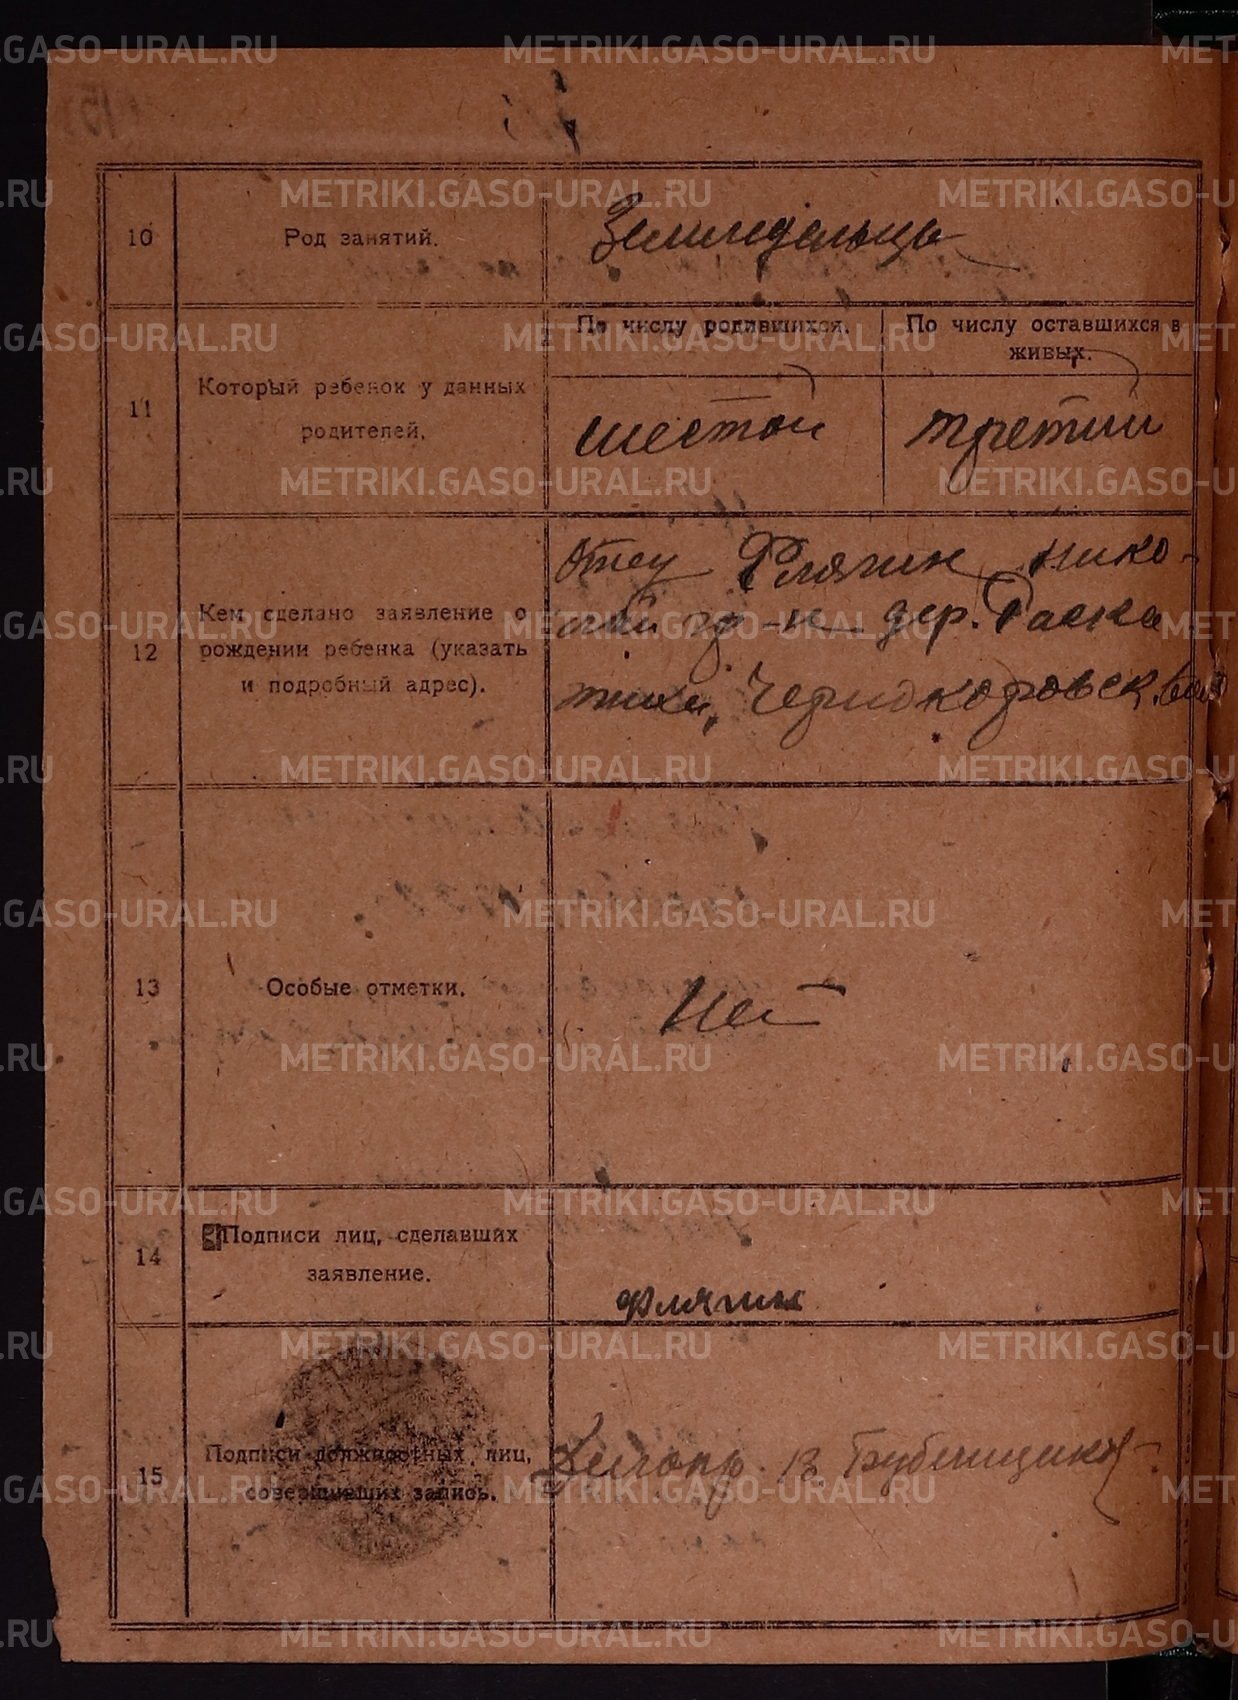 10
Род занятий.
Земледельцы
11
Который ребенок у данных
родителей.
По числу родившихся.
По числу оставшихся в
живых.
шестой
третий
12
Кем сделано заявление о
рождении ребенка (указать
и подробный адрес).
Отец Флягин Нико-
лай гр-н дер. Раска
тихи, Чернокоровск. вол
13
Особые отметки.
Нет
14
Подписи лиц, сделавших
заявление.
Флягин
15
Подписи должностных лиц,
совершивших запись.
Делопр. В. Бубенщиков
METRIKI.GASO-URAL.RU